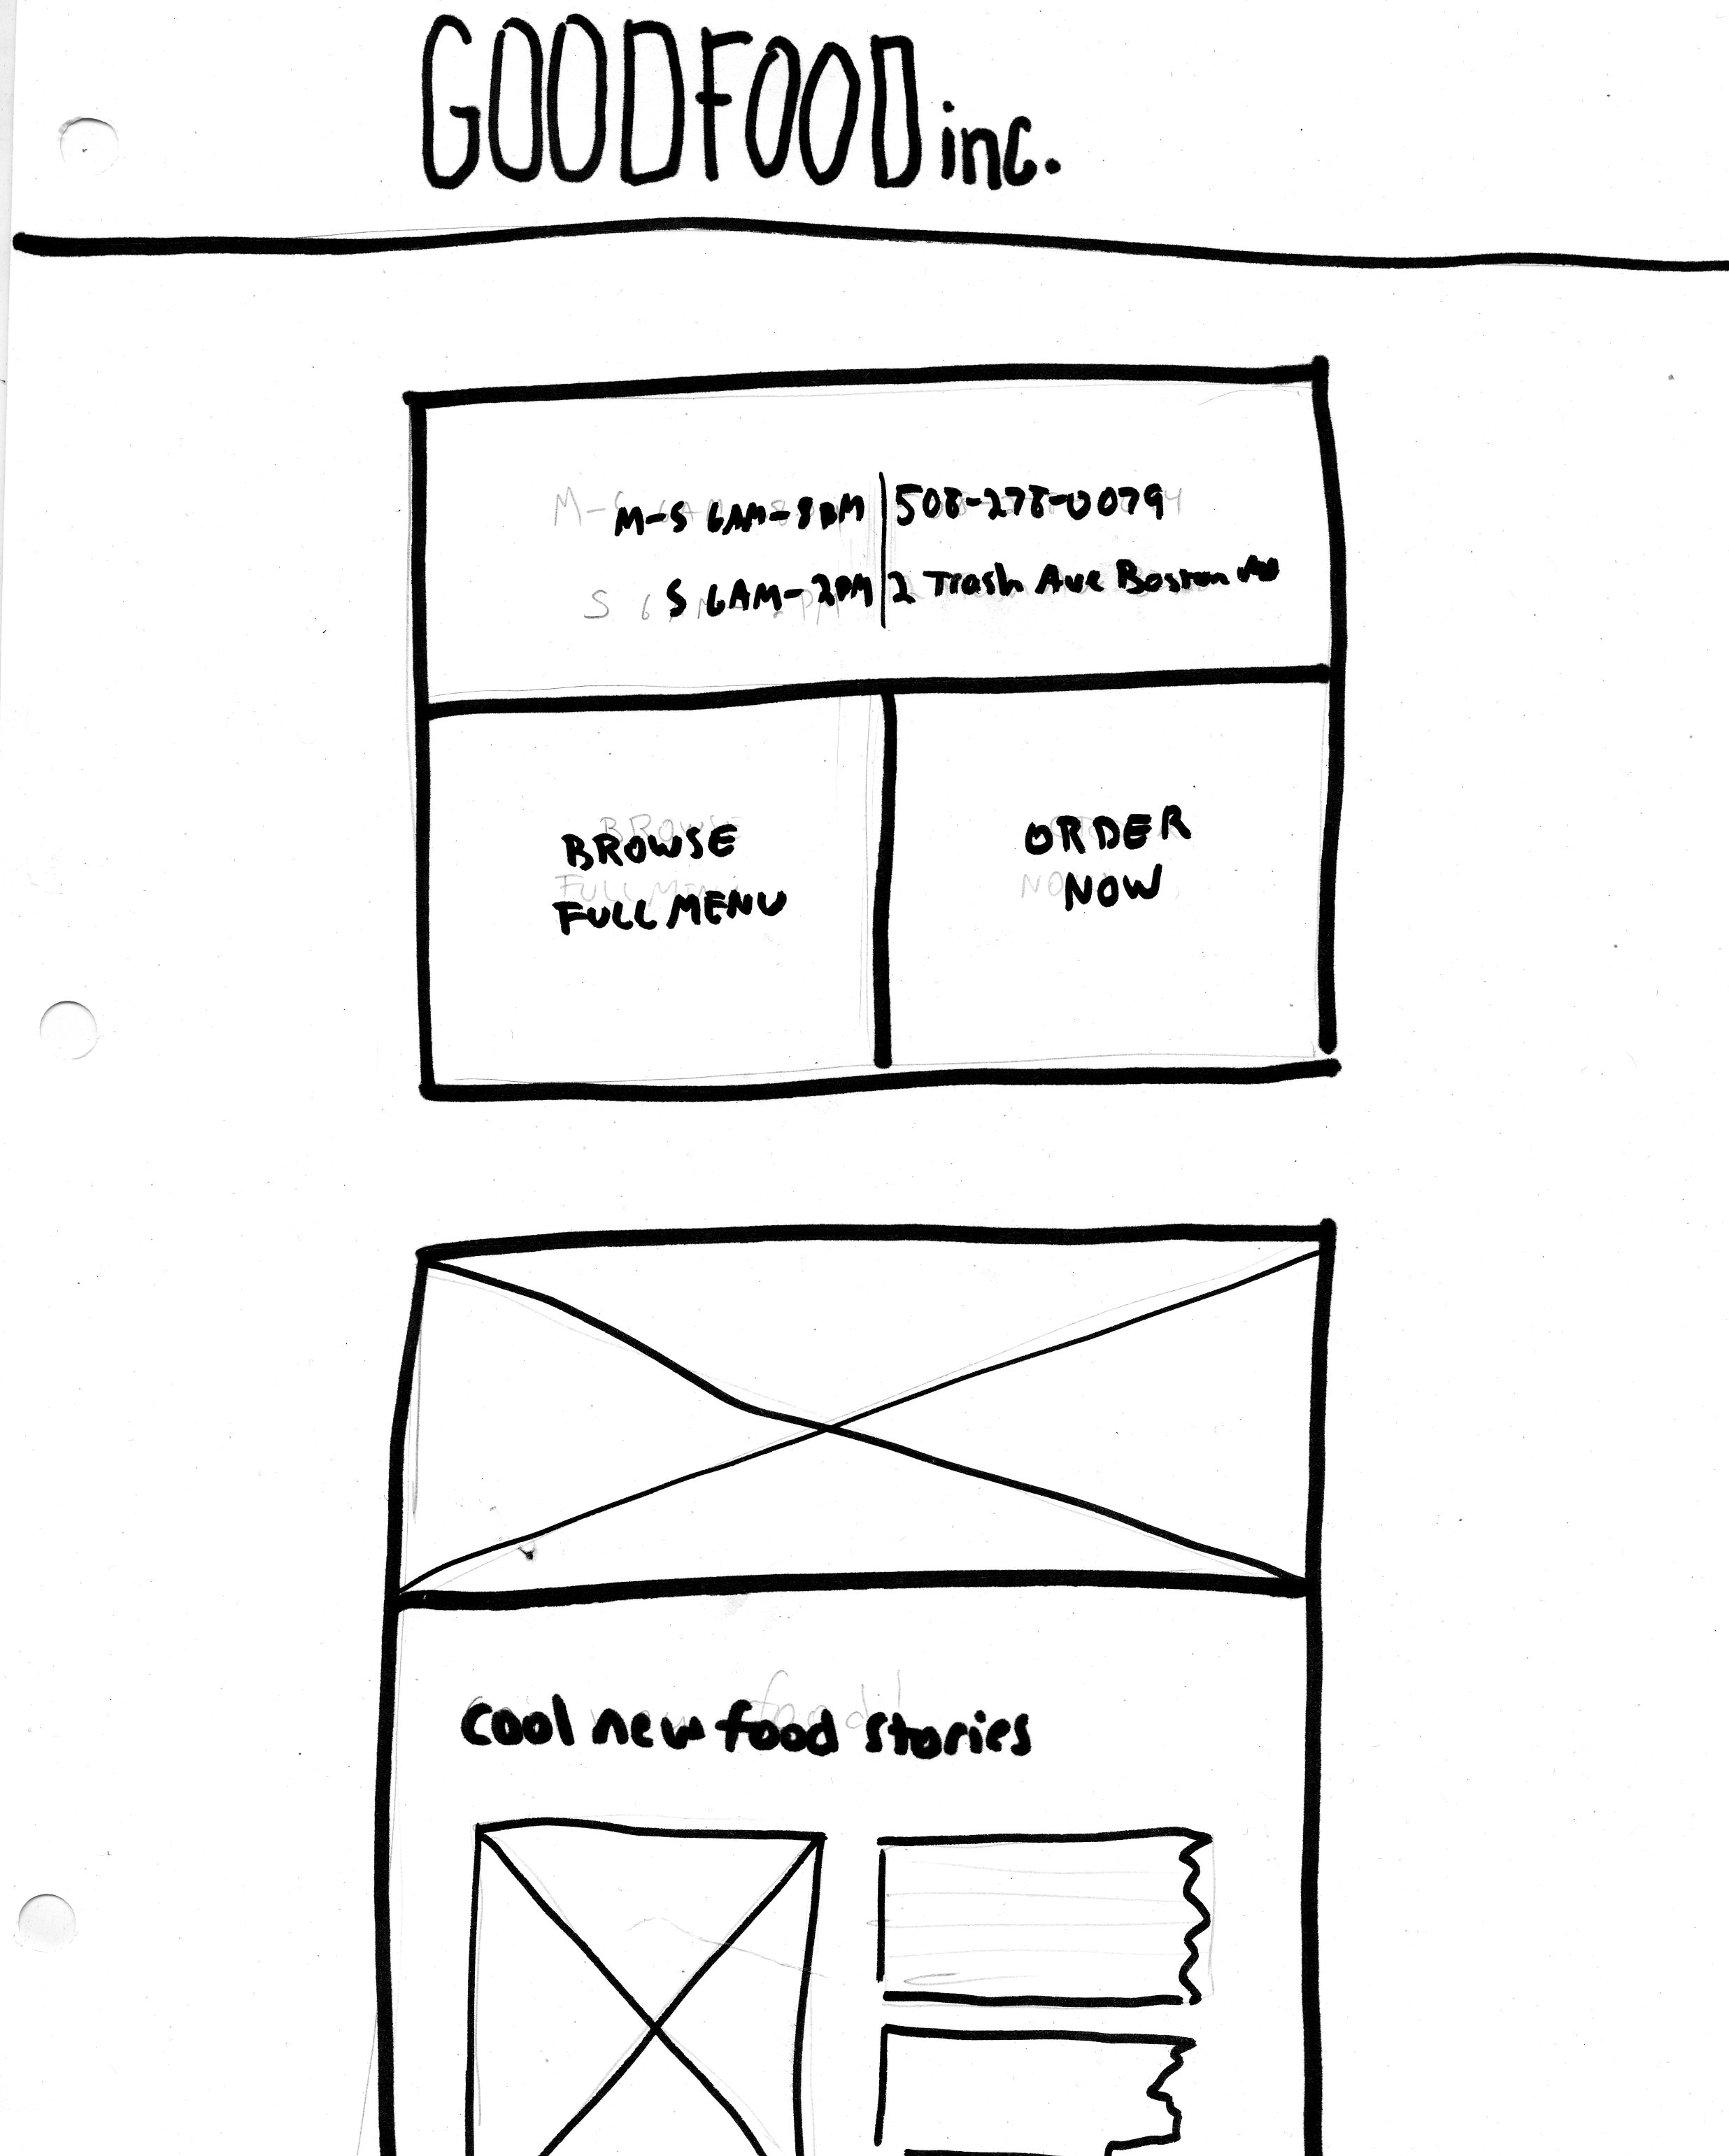 GOODFOOD inc.
M-S 6AM-8PM | 508-278-0079
S 6AM-2PM | 2 Trash Ave Boston
BROWSE
FULL MENU
ORDER
NOW
cool new food stories